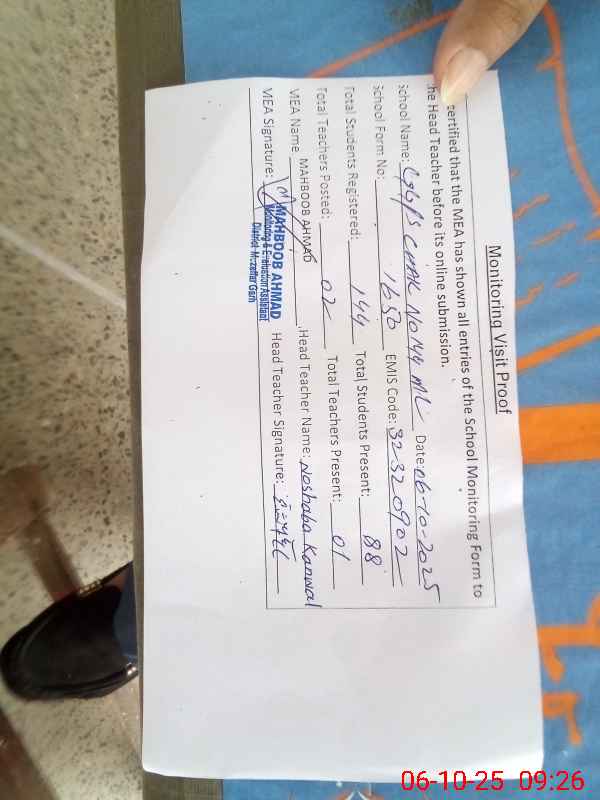 Monitoring Visit Proof
certified that the MEA has shown all entries of the School Monitoring Form to
he Head Teacher before its online submission.
School Name: GGPS CHAK No 144 ML Date: 06-10-2025
School Form No: 1650 EMIS Code: 32320902
Total Students Registered: 144 Total Students Present: 88
Total Teachers Posted: 02 Total Teachers Present: 01
MEA Name MAHBOOB AHMAD, Head Teacher Name: Noshaba Kanwal
MEA Signature: Head Teacher Signature:
MAHBOOB AHMAD
Monitoring & Evaluation Assistant
District Muzaffar Garh
06-10-25 09:26